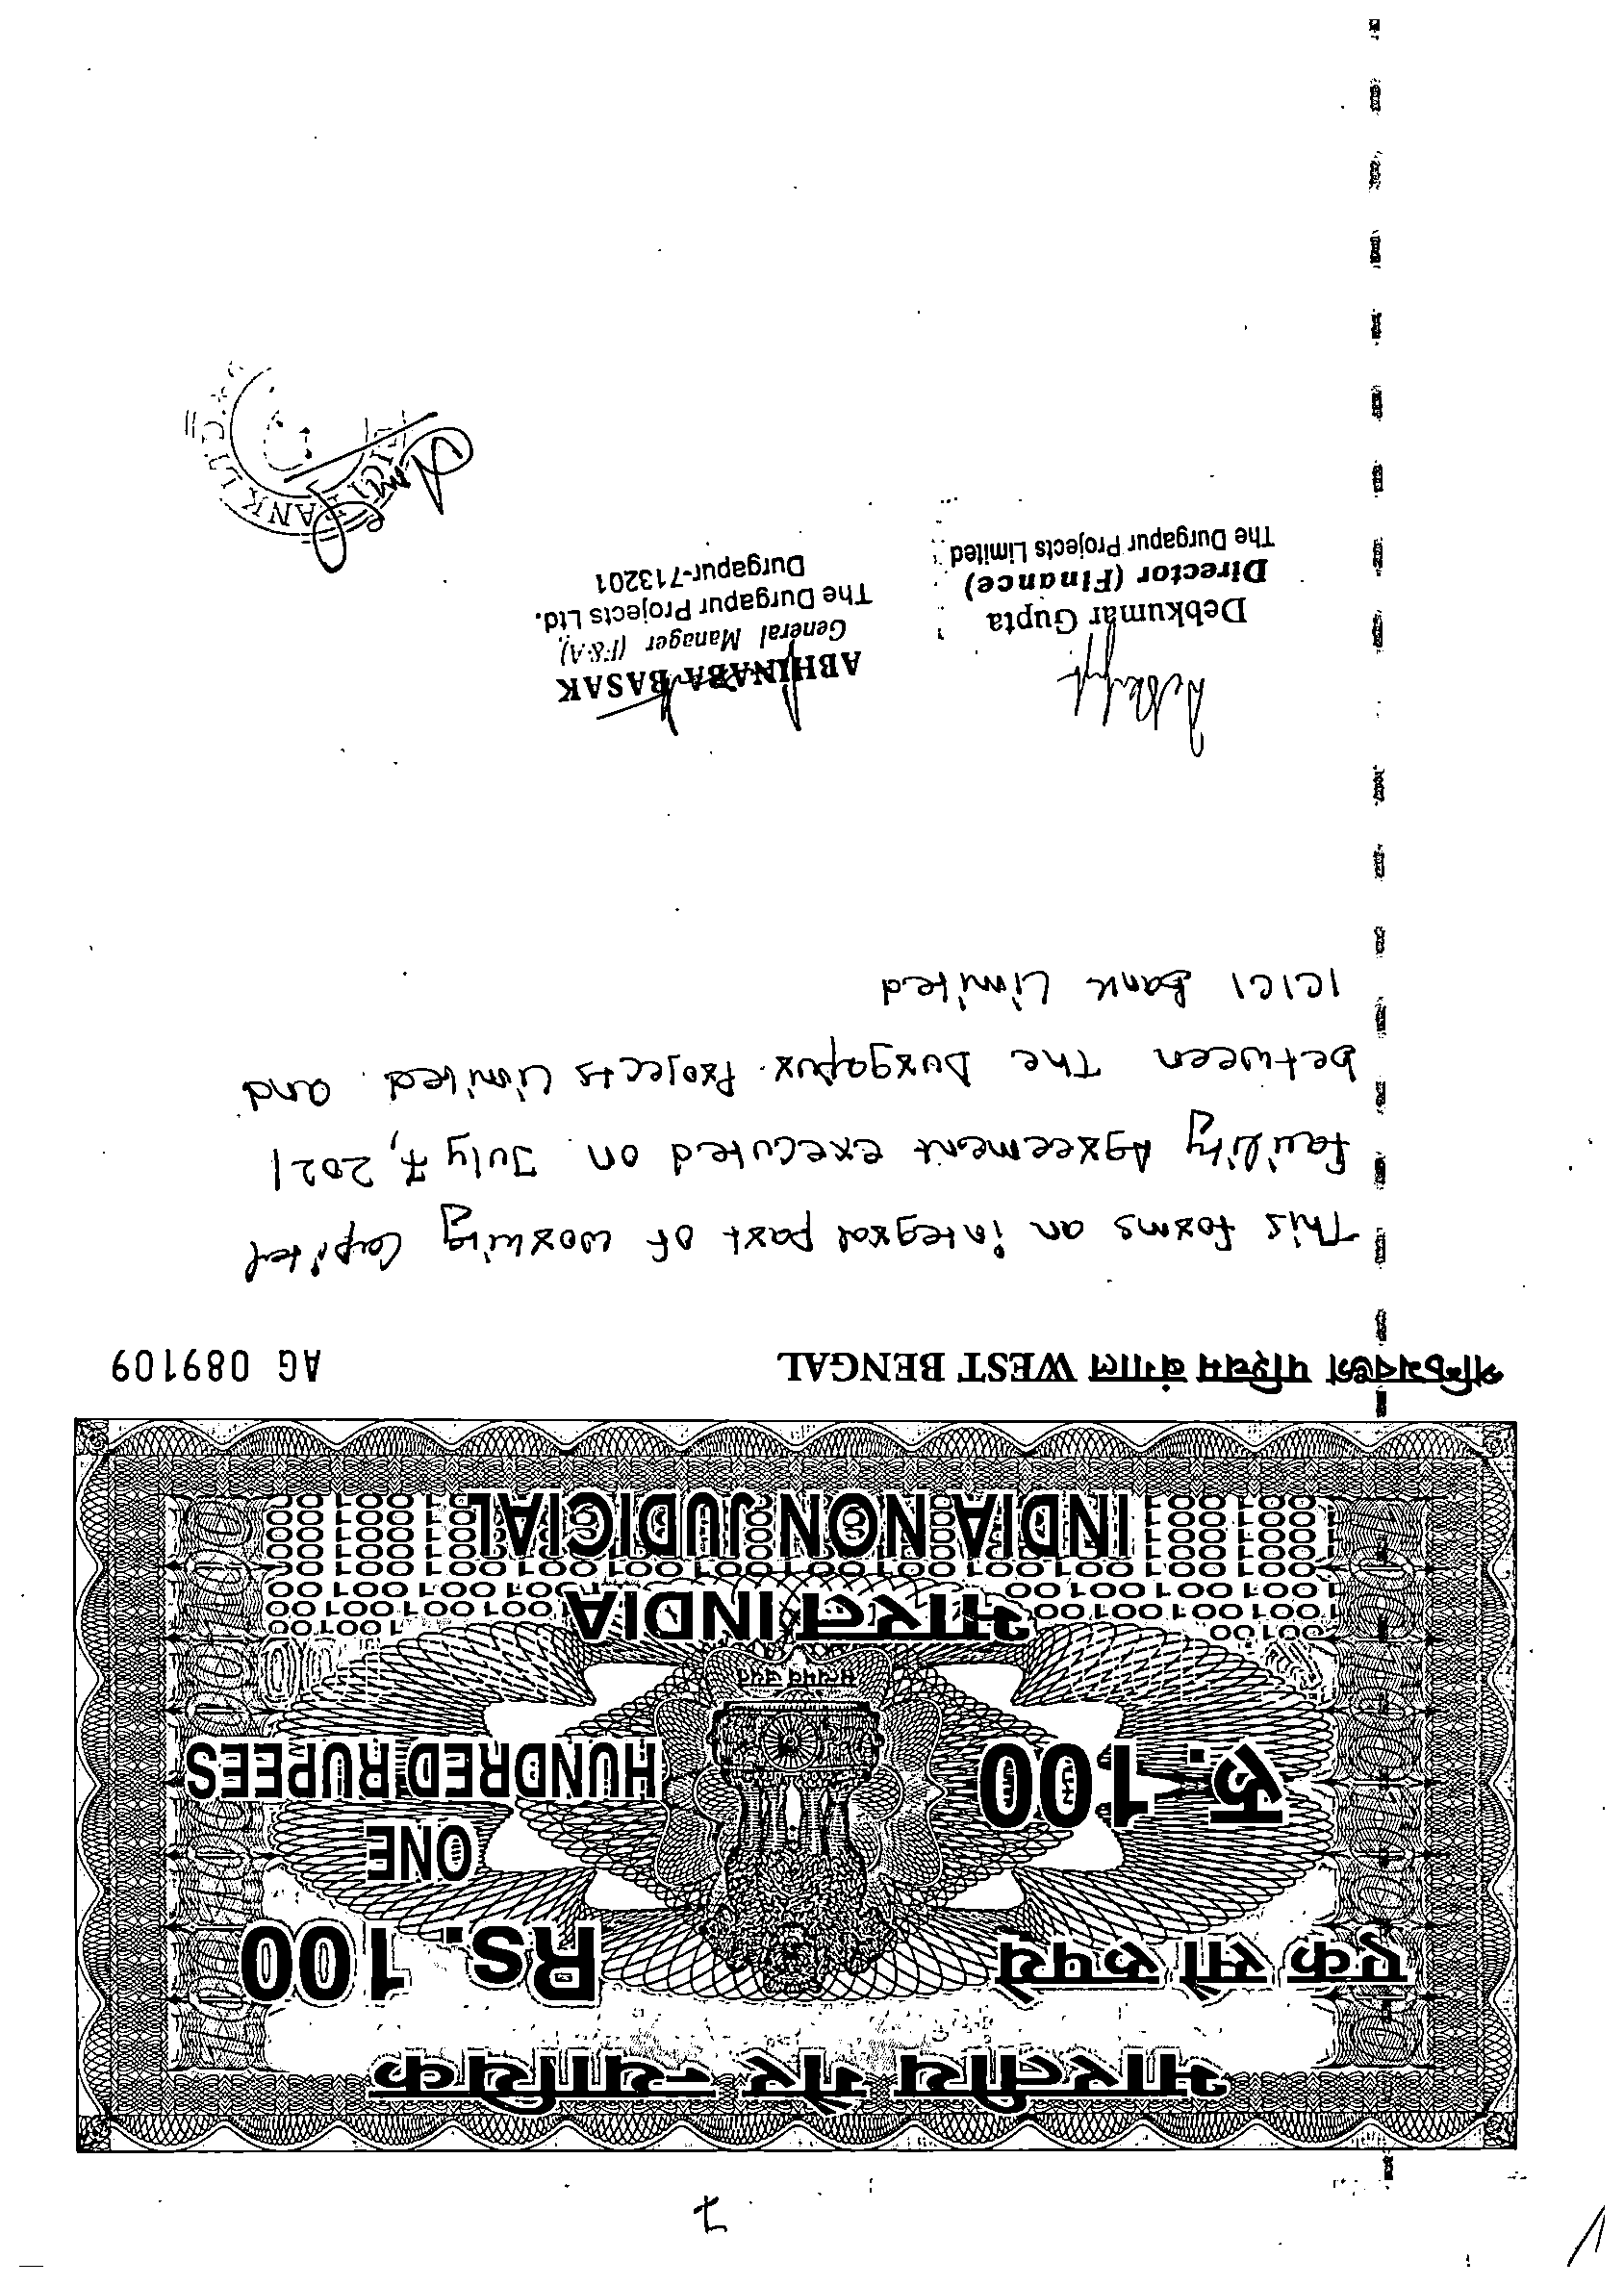 भारतीय गैर न्यायिक
एक सौ रुपये
Rs. 100
रु. 100
ONE
HUNDRED RUPEES
सत्यमेव जयते
भारत INDIA
INDIA NON JUDICIAL
পশ্চিমবঙ্গ पश्चिम बंगाल WEST BENGAL
AG 089109
This forms an integral part of working Capital
facility Agreement executed on July 7, 2021
between The Durgapur Projects Limited and
ICICI Bank Limited
Debkumar Gupta
Director (Finance)
The Durgapur Projects Limited
ABHINABA BASAK
General Manager (F&A),
The Durgapur Projects Ltd.
Durgapur-713201
ICICI BANK LTD.